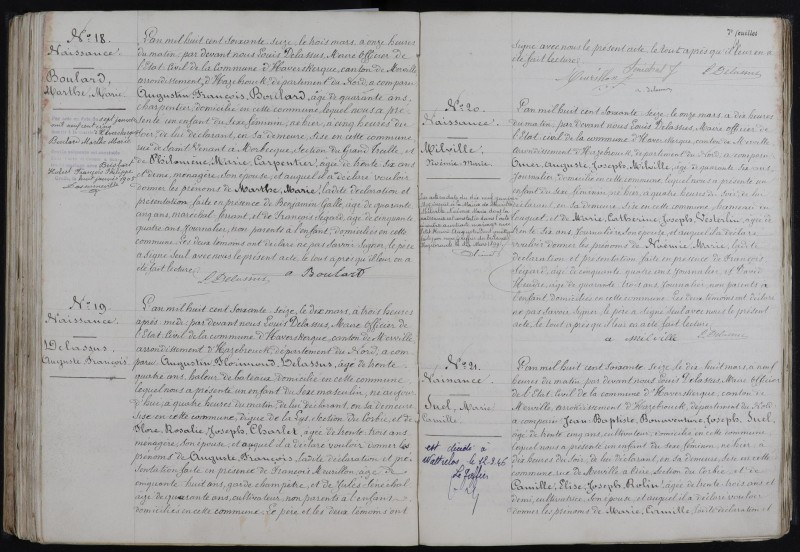 N° 18.
Naissance.
Boulard,
Marthe Marie
L'an mil huit cent soixante seize, le trois mars, à onze heures
du matin, par devant nous Louis Delassus Maire officier de
l'Etat Civil de la Commune d'Haverskerque, canton de Merville,
arrondissement d'Hazebrouck, département du Nord, a comparu
Augustin François, Boulard, âgé de quarante ans,
charpentier, domicilié en cette commune, lequel nous a pré-
senté un enfant du sexe féminin, né hier, à cinq heures du
soir, de lui déclarant, en sa demeure, sise en cette commune,
et de Philomène, Marie, Carpentier, âgée de trente six ans
et demi, ménagère, son épouse, et auquel il a déclaré vouloir
donner les prénoms de Marthe, Marie; ladite déclaration et
présentation faite en présence de Benjamin Galle, âgé de quarante
cinq ans, maréchal ferrant, et de François Segard, âgé de cinquante
quatre ans, journalier, non parents à l'enfant, domiciliés en cette
commune. Les deux témoins ont déclaré ne pas savoir signer, le père
a signé seul avec nous le présent acte, le tout après qu'il leur en a
été fait lecture.
L. Delassus
a Boulart
N° 19
Naissance.
Delassus,
Auguste François.
L'an mil huit cent soixante seize, le dix mars, à trois heures
après midi, par devant nous Louis Delassus, Maire officier de
l'Etat Civil de la Commune d'Haverskerque, canton de Merville,
arrondissement d'Hazebrouck, département du Nord, a com-
paru Augustin Florimond, Delassus, âgé de trente
quatre ans, haleur de bateaux, domicilié en cette commune
lequel nous a présenté un enfant du sexe masculin, né aujour-
d'hui, à quatre heures du matin, de lui déclarant, en sa demeure
sise en cette commune, digue de la Lys, section du Corbie, et de
Flore, Rosalie, Joseph, âgée de trente trois ans
ménagère, son épouse, et auquel il a déclaré vouloir donner les
prénoms de Auguste, François, ladite déclaration et pré-
sentation faite en présence de François Meurillon, âgé de
cinquante huit ans, garde champêtre, et de Jules
âgé de quarante ans, cultivateur, non parents à l'enfant
domiciliés en cette commune. Le père et les deux témoins ont
7e feuillet
signé avec nous le présent acte, le tout après qu'il leur en a
été fait lecture.
Meurillon
L. Delassus
N° 20.
Naissance.
Milville,
Noémie Marie.
L'an mil huit cent soixante seize, le onze mars, à dix heures
du matin, par devant nous Louis Delassus, Maire officier
de l'Etat Civil de la commune d'Haverskerque, canton de Merville
arrondissement d'Hazebrouck, département du Nord, a comparu
Omer, Auguste, Joseph, Milville, âgé de quarante six ans,
journalier, domicilié en cette commune, lequel nous a présenté un
enfant du sexe féminin, né hier, à quatre heures du soir, de lui
déclarant, en sa demeure, sise en cette commune,
et de Marie, Catherine, Joseph, Desterlin, âgée de
trente six ans, journalière, son épouse, et auquel il a déclaré
vouloir donner les prénoms de Noémie Marie, ladite
déclaration et présentation faite en présence de François
Segard, âgé de cinquante quatre ans, journalier, et
âgé de quarante trois ans, journalier, non parents à
l'enfant, domiciliés en cette commune. Les deux témoins ont déclaré
ne pas savoir signer, le père a signé seul avec nous le présent
acte, le tout après qu'il leur en a été fait lecture.
a milville
L. Delassus
N° 21.
Naissance.
Suel, Marie
Camille.
est décédée à
Wattrelos, le 12.3.46
Le Greffier
L'an mil huit cent soixante seize, le dix huit mars, à neuf
heures du matin, par devant nous Louis Delassus, Maire officier
de l'Etat Civil de la commune d'Haverskerque, canton de
Merville, arrondissement d'Hazebrouck, département du Nord
a comparu Jean Baptiste, Bonaventure, Joseph, Suel,
âgé de trente cinq ans, cultivateur, domicilié en cette commune,
lequel nous a présenté un enfant du sexe féminin, né hier, à
dix heures du soir, de lui déclarant, en sa demeure, sise en cette
commune, rue de Merville à Aire, section du Corbie, et de
Camille, Elise, Joseph, Robin, âgée de trente trois ans et
demi, cultivatrice, son épouse, et auquel il a déclaré vouloir
donner les prénoms de Marie, Camille, ladite déclaration et